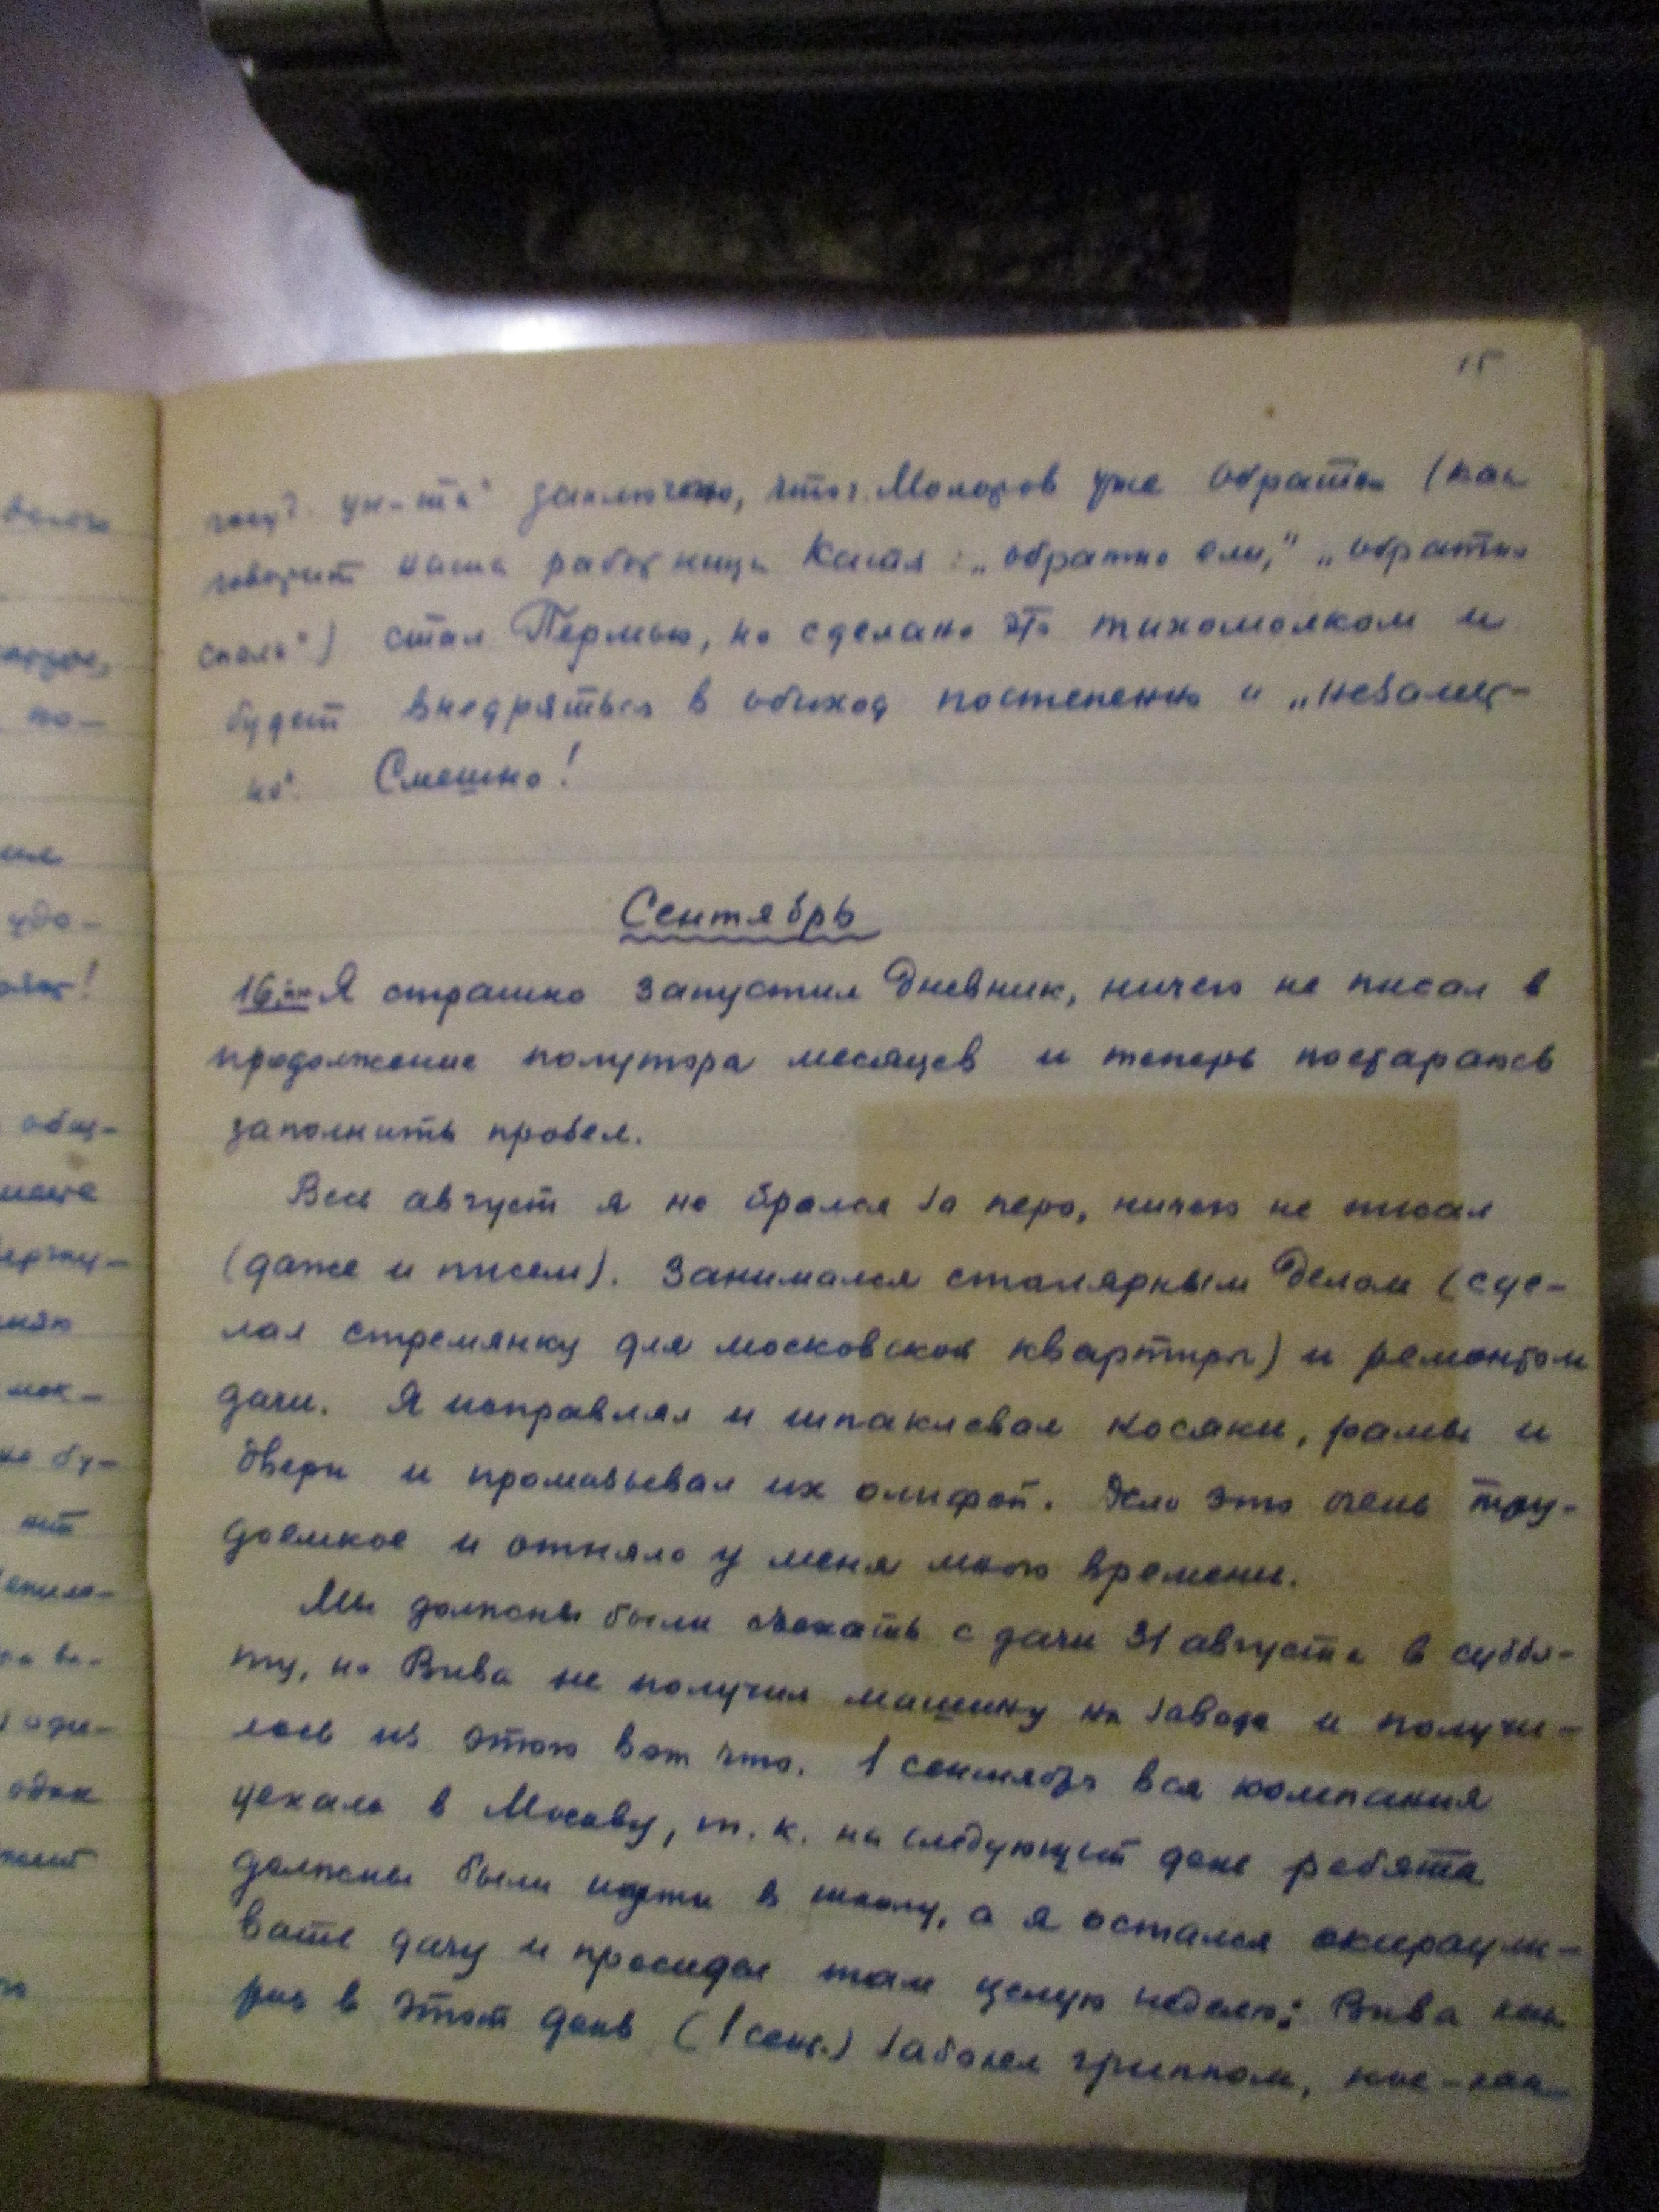 15
госуд. ун-та" заключаю, что г. Молотов уже обратно (как
говорит наша работница Катя: „обратно ели," „обратно
спали") стал Пермью, но сделано это тихомолком и
будет внедряться в обиход постепенно и „незамет-
но". Смешно!
Сентябрь
16. Я страшно запустил дневник, ничего не писал в
продолжение полутора месяцев и теперь постараюсь
заполнить пробел.
Весь август я не брался за перо, ничего не писал
(даже и писем). Занимался столярным делом (сде-
лал стремянку для московской квартиры) и ремонтом
дачи. Я исправлял и шпаклевал косяки, рамы и
двери и промазывал их олифой. Дело это очень тру-
доемкое и отняло у меня много времени.
Мы должны были съехать с дачи 31 августа в суббо-
ту, но Вива не получил машину на заводе и получи-
лось из этого вот что. 1 сентября вся компания
уехала в Москву, т. к. на следующий день ребята
должны были идти в школу, а я остался окараули-
вать дачу и просидел там целую неделю: Вива как
раз в этот день (1 сент.) заболел гриппом, кое-как